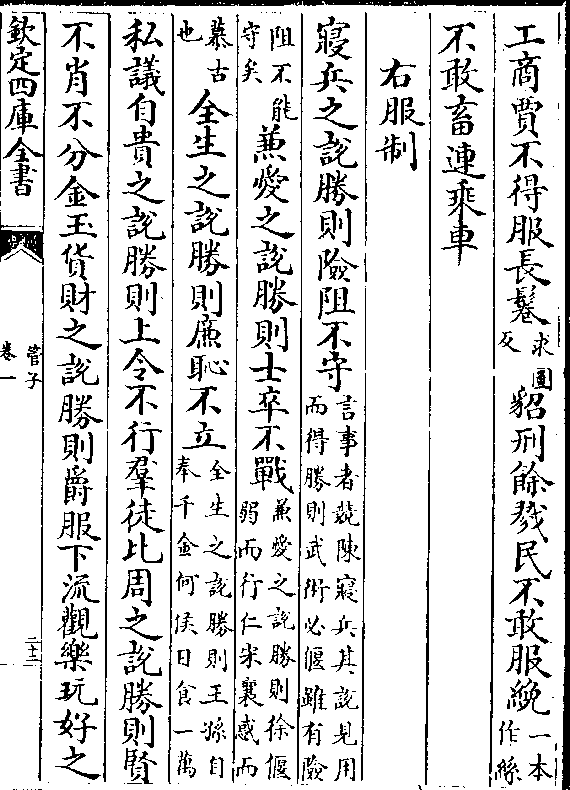 工商賈不得服長鬈求圓反貂刑餘戮民不敢服絻一本作絲
不敢畜連乘車
右服制
寢兵之說勝則險阻不守言事者競陳寢兵其說見用而得勝則武術必偃雖有險
阻不能守矣兼愛之說勝則士卒不戰兼愛之說勝則徐偃弱而行仁宋襄惑而
慕古也全生之說勝則廉恥不立全生之說勝則王孫自奉千金何侯日食一萬
私議自貴之說勝則上令不行羣徒比周之說勝則賢
不肖不分金玉貨財之說勝則爵服下流觀樂玩好之
欽定四庫全書
管子
卷一
二十二